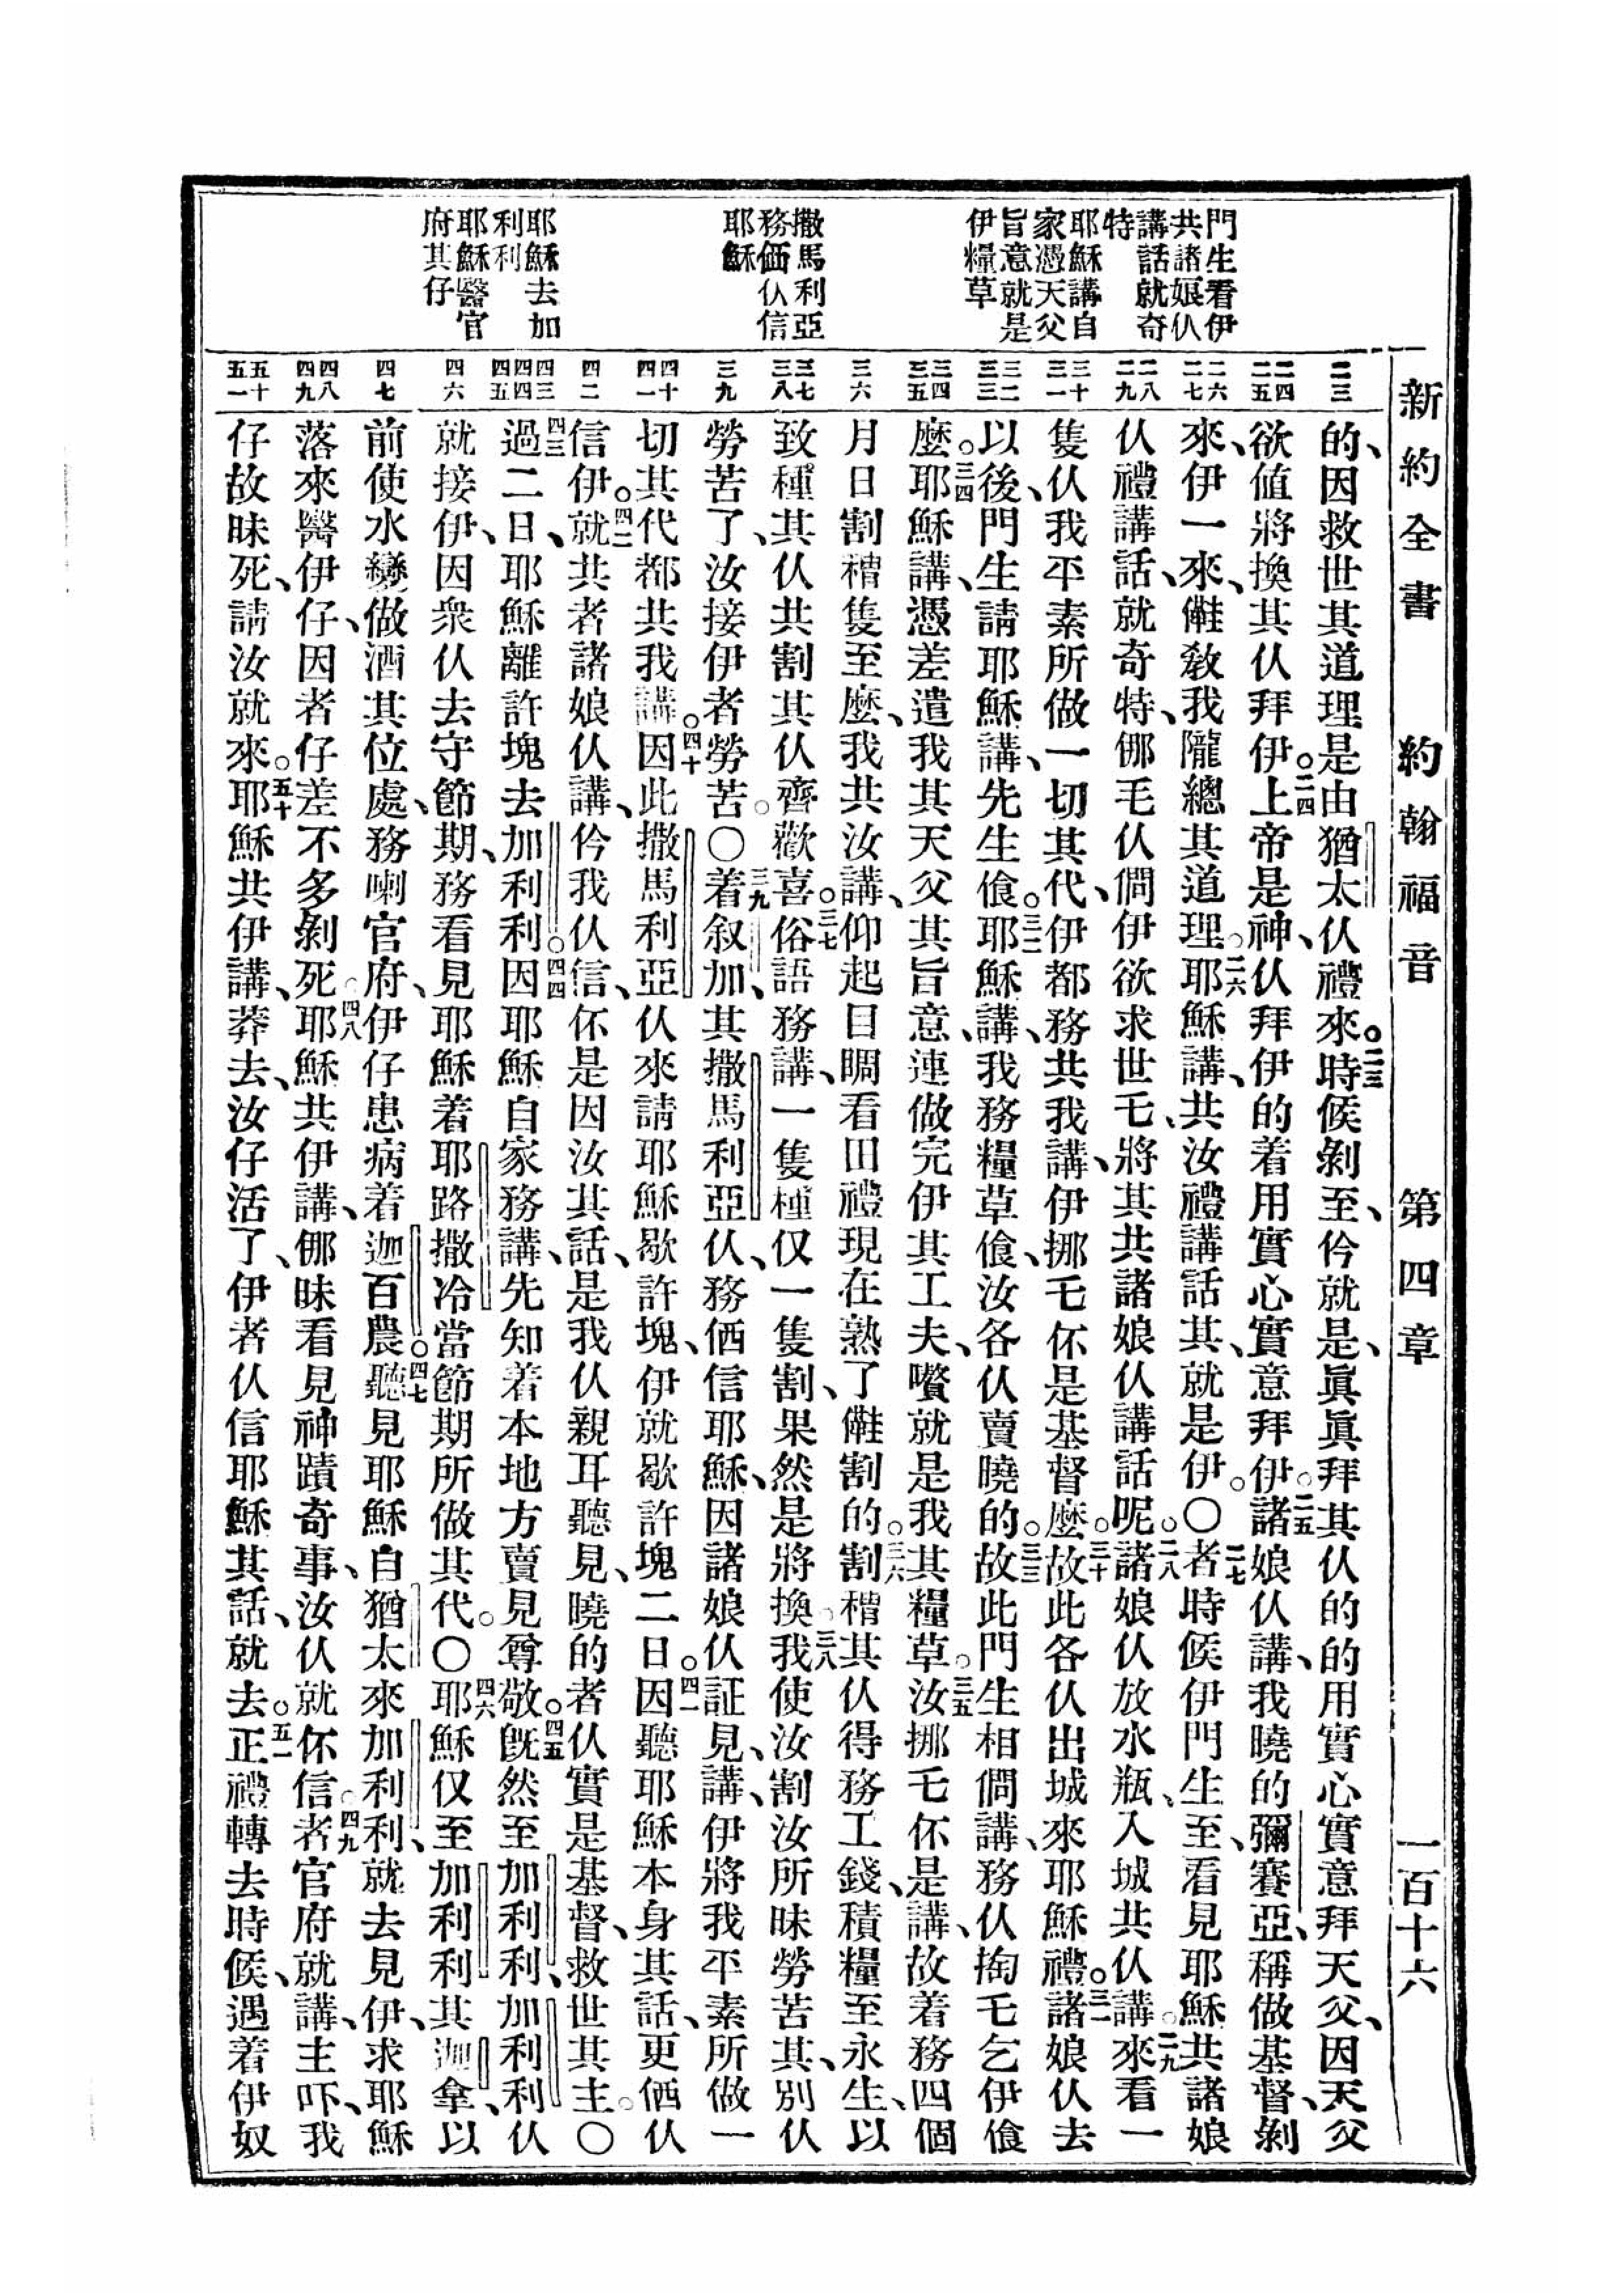 新約全書　約翰福音　第四章　一百十六
門生看伊
共諸娘仈
講話就奇
特
耶穌講自
家憑天父
旨意就是
伊糧草
撒馬利亞
務価仈信
耶穌
耶穌去加
利利
耶穌醫官
府其仔
二三
二四
二五
二六
二七
二八
二九
三十
三一
三二
三三
三四
三五
三六
三七
三八
三九
四十
四一
四二
四三
四四
四五
四六
四七
四八
四九
五十
五一
的、因救世其道理是由猶太仈禮來。二三時候剝至、仱就是、眞眞拜其仈的的用實心實意拜天父、因天父
欲值將換其仈拜伊。二四上帝是神、仈拜伊的着用實心實意拜伊。二五諸娘仈講、我曉的彌賽亞、稱做基督、剝
來、伊一來、㑲敎我隴總其道理。二六耶穌講、共汝禮講話其、就是伊。〇二七者時候伊門生至、看見耶穌共諸娘
仈禮講話、就奇特、㑚毛仈僩伊欲求世乇、將其共諸娘仈講話呢。二八諸娘仈放水瓶、入城共仈講。二九來看一
隻仈、我平素所做一切其代、伊都務共我講、伊挪乇伓是基督麼。三十故此各仈出城來耶穌禮。三一諸娘仈去
以後、門生請耶穌講、先生飡。三二耶穌講、我務糧草飡、汝各仈賣曉的。三三故此門生相僩講、務仈掏乇乞伊飡
麼。三四耶穌講、憑差遣我其天父其旨意、連做完伊其工夫、嚽就是我其糧草。三五汝挪乇伓是講、故着務四個
月日割䆀隻至麼、我共汝講、仰起目睭看田禮現在熟了、㑲割的。三六割䆀其仈得務工錢、積糧至永生、以
致種其仈共割其仈齊歡喜。三七俗語務講、一隻種仅一隻割、果然是將換。三八我使汝割汝所昧勞苦其、別仈
勞苦了、汝接伊者勞苦。〇三九着叙加、其撒馬利亞仈、務価信耶穌、因諸娘仈証見、講、伊將我平素所做一
切其代都共我講。四十因此撒馬利亞仈來請耶穌歇許塊、伊就歇許塊二日。四一因聽耶穌本身其話、更価仈
信伊。四二就共者諸娘仈講、仱我仈信、伓是因汝其話、是我仈親耳聽見、曉的者仈實是基督、救世其主。〇
四三過二日、耶穌離許塊去加利利。四四因耶穌自家務講、先知着本地方賣見尊敬。四五旣然至加利利、加利利仈
就接伊、因衆仈去守節期、務看見耶穌着耶路撒冷當節期所做其代。〇四六耶穌仅至加利利其迦拿、以
前使水變做酒其位處、務喇官府、伊仔患病着迦百農。四七聽見耶穌自猶太來加利利、就去見伊、求耶穌
落來醫伊仔、因者仔差不多剝死。四八耶穌共伊講、㑚昧看見神蹟奇事、汝仈就伓信。四九者官府就講、主吓、我
仔故昧死、請汝就來。五十耶穌共伊講、莽去、汝仔活了、伊者仈信耶穌其話、就去。五一正禮轉去時候、遇着伊奴